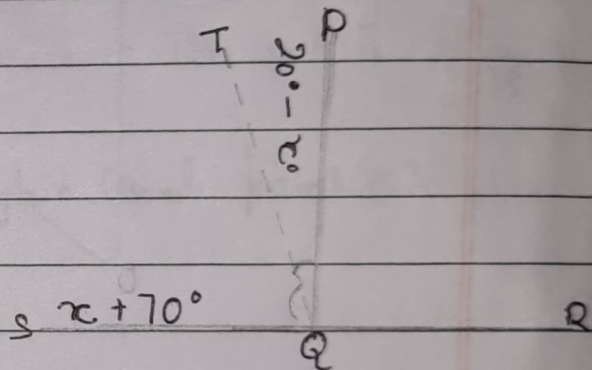 T
P
20° - x°
S
x + 70°
Q
R